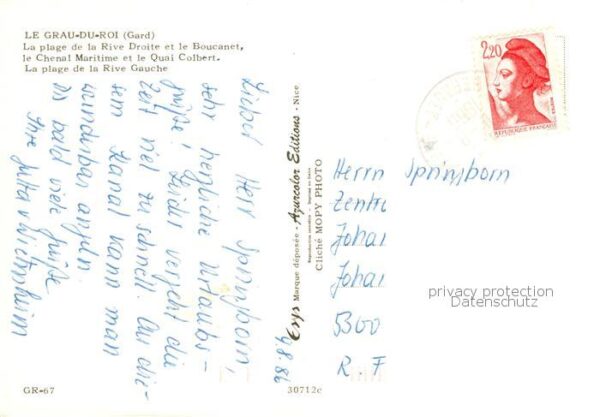 LE GRAU-DU-ROI (Gard)
La plage de la Rive Droite et le Boucanet,
le Chenal Maritime et le Quai Colbert.
La plage de la Rive Gauche
Lieber Herr Springborn,
sehr herzliche Urlaubs-
grüße! Leider vergeht die
Zeit viel zu schnell. An die-
sem Kanal kann man
wunderbar angeln.
Bis bald viele Grüße
Ihre Jutta
4.8.86
Erys Marque déposée - Azurcolor Editions - Nice
Reproduction interdite - Imprimé en Italie
Cliché MOPY PHOTO
2,20
REPUBLIQUE FRANÇAISE
Herrn Springborn
Zentr
Johan
Johan
5300
R. F
privacy protection
Datenschutz
GR-67
30712c